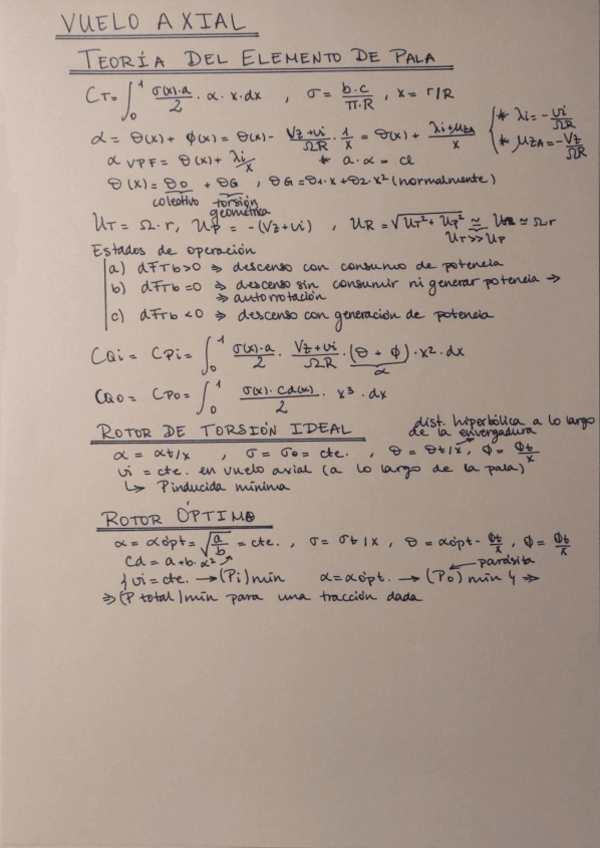 VUELO AXIAL
TEORÍA DEL ELEMENTO DE PALA
C_T = ∫₀¹ σ(x)·a/2 · α · x · dx , σ = b·c/(π·R) , x = r/R
α = θ(x) + ϕ(x) = θ(x) - (Vz+vi)/(ΩR) · 1/x = θ(x) + (λi+μZA)/x { * λi = -vi/(ΩR)
* μZA = -Vz/(ΩR)
α VPF = θ(x) + λi/x * a·α = cl
θ(x) = θ0 + θG , θG = θ1·x + θ2·x² (normalmente)
colectivo torsión
geométrica
U_T = Ω·r, U_P = -(Vz+vi) , U_R = √(U_T² + U_P²) ≃ U_R ≃ Ωr
U_T >> U_P
Estados de operación
a) dFTb > 0 ⇒ descenso con consumo de potencia
b) dFTb = 0 ⇒ descenso sin consumir ni generar potencia ⇒
⇒ autorrotación
c) dFTb < 0 ⇒ descenso con generación de potencia
CQi = CPi = ∫₀¹ σ(x)·a/2 · (Vz+vi)/(ΩR) · (θ + ϕ) · x² · dx
α
CQ0 = CP0 = ∫₀¹ σ(x)·Cd(x)/2 · x³ · dx
ROTOR DE TORSIÓN IDEAL
dist. hiperbólica a lo largo
de la envergadura
α = αt/x , σ = σ0 = cte. , θ = θt/x , ϕ = ϕt/x
vi = cte. en vuelo axial (a lo largo de la pala)
↳ Pinducida mínima
ROTOR ÓPTIMO
α = αópt = √(a/b) = cte. , σ = σt/x , θ = αópt - ϕt/x , ϕ = ϕt/x
Cd = a + b·α²
parásita
{ vi = cte. → (Pi) mín α = αópt. → (P0) mín } ⇒
⇒ (P total) mín para una tracción dada